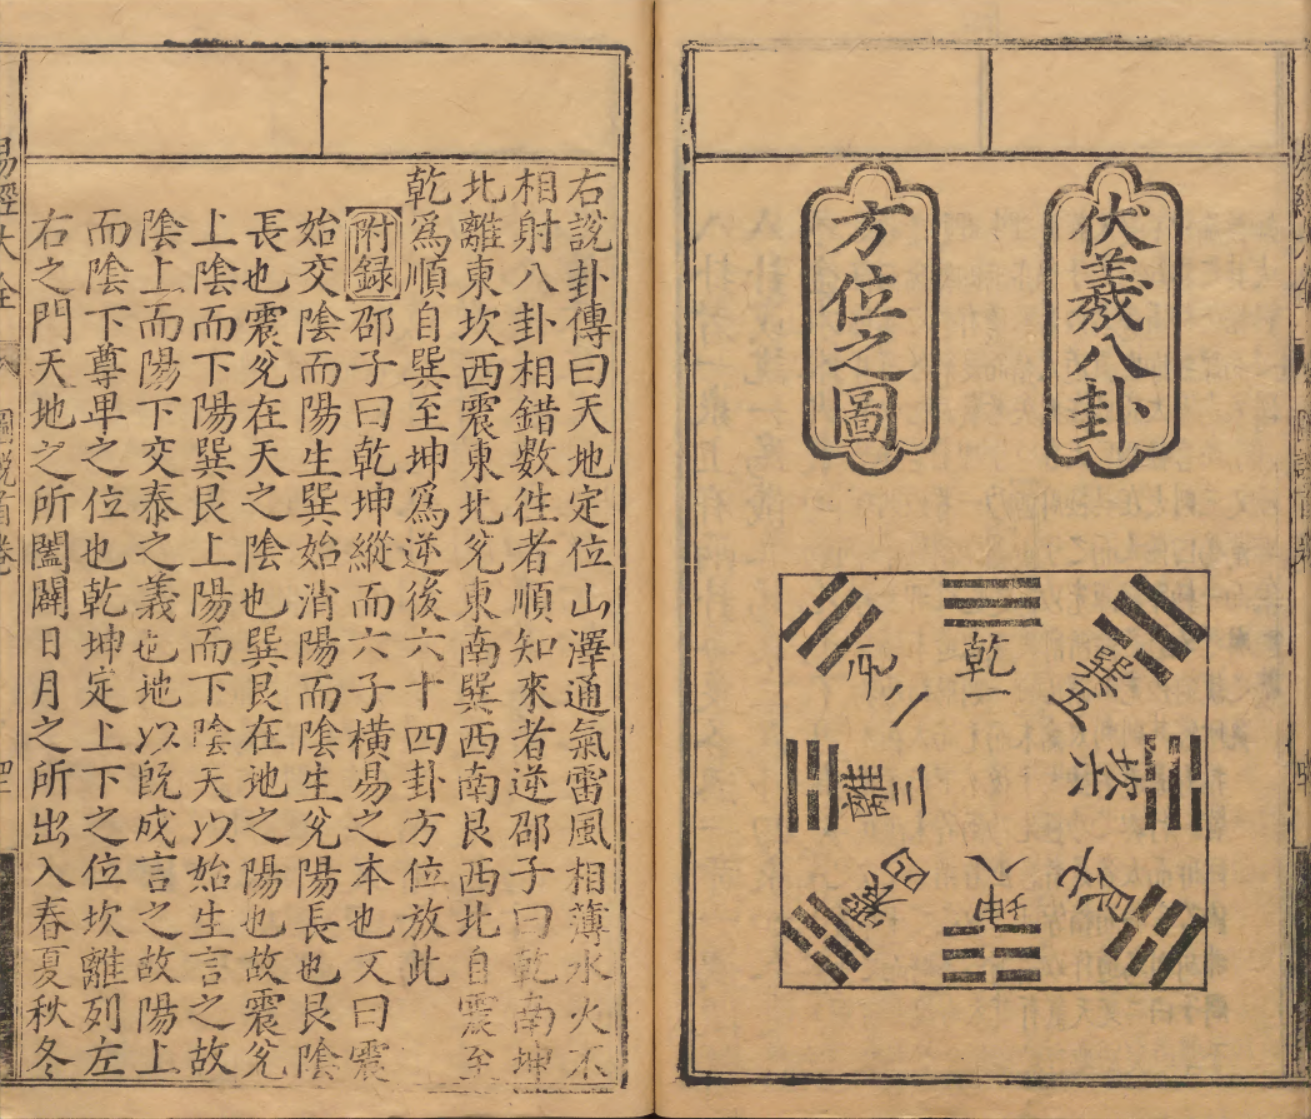 伏羲八卦
方位之圖
乾一
兌二
離三
震四
巽五
坎六
艮七
坤八
右說卦傳曰天地定位山澤通氣雷風相薄水火不
相射八卦相錯數徃者順知來者逆邵子曰乾南坤
北離東坎西震東北兌東南巽西南艮西北自震至
乾爲順自巽至坤爲逆後六十四卦方位放此
附録邵子曰乾坤縱而六子橫易之本也又曰震
始交陰而陽生巽始消陽而陰生兌陽長也艮陰
長也震兌在天之陰也巽艮在地之陽也故震兌
上陰而下陽巽艮上陽而下陰天以始生言之故
陰上而陽下交泰之義也地以旣成言之故陽上
而陰下尊卑之位也乾坤定上下之位坎離列左
右之門天地之所闔闢日月之所出入春夏秋冬
易經大全
圖說首卷